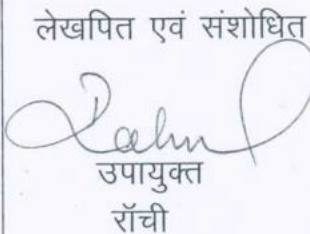 लेखपित एवं संशोधित
उपायुक्त
रॉची